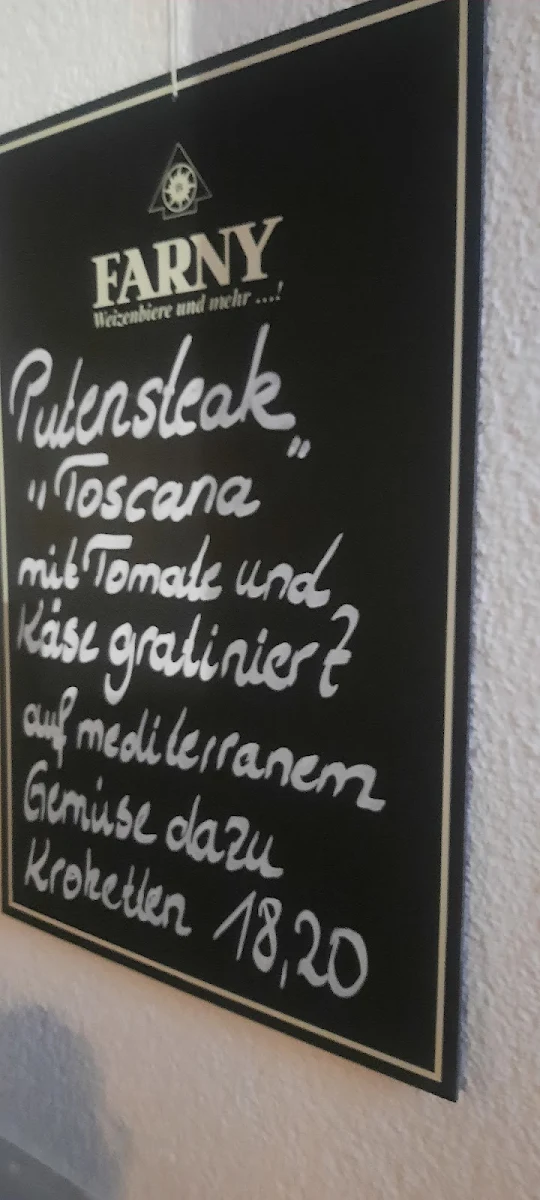 FARNY
Weizenbiere und mehr ...!
Putensteak
"Toscana"
mit Tomate und
Käse gratiniert
auf mediterranem
Gemüse dazu
Kroketten 18,20